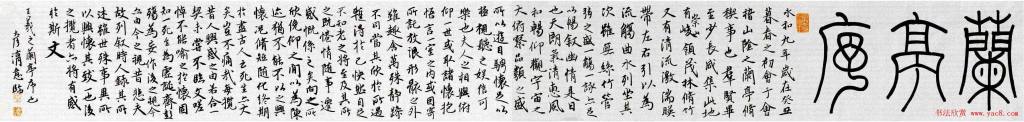 蘭亭序
永和九年歲在癸丑
暮春之初會于會
稽山陰之蘭亭脩
禊事也羣賢畢
至少長咸集此地
有崇峻領茂林脩竹
又有清流激湍暎
帶左右引以為
流觴曲水列坐其
次雖無絲竹管
弦之盛一觴一詠亦足
以暢敘幽情是日
也天朗氣清惠風
和暢仰觀宇宙之
大俯察品類之盛
所以遊目騁懷足以
極視聽之娛信可
樂也夫人之相與
俯仰一世或取諸懷抱
悟言一室之內或因寄
所託放浪形骸之外
雖趣舍萬殊靜躁
不同當其欣於所遇
暫得於己快然自足
不知老之將至及其所
之既惓情隨事遷
感慨係之矣向之所
欣俛仰之閒以為陳
迹猶不能不以之興
懷況脩短隨化終期
於盡古人云死生亦大
矣豈不痛哉每攬
昔人興感之由若合一
契未嘗不臨文嗟
悼不能喻之於懷固
知一死生為虛誕齊彭
殤為妄作後之視今
亦由今之視昔悲夫
故列敘時人錄其所
述雖世殊事異所
以興懷其致一也後
之攬者亦將有感
於斯文
王羲之蘭亭序也
书法欣赏
www.yac8.com